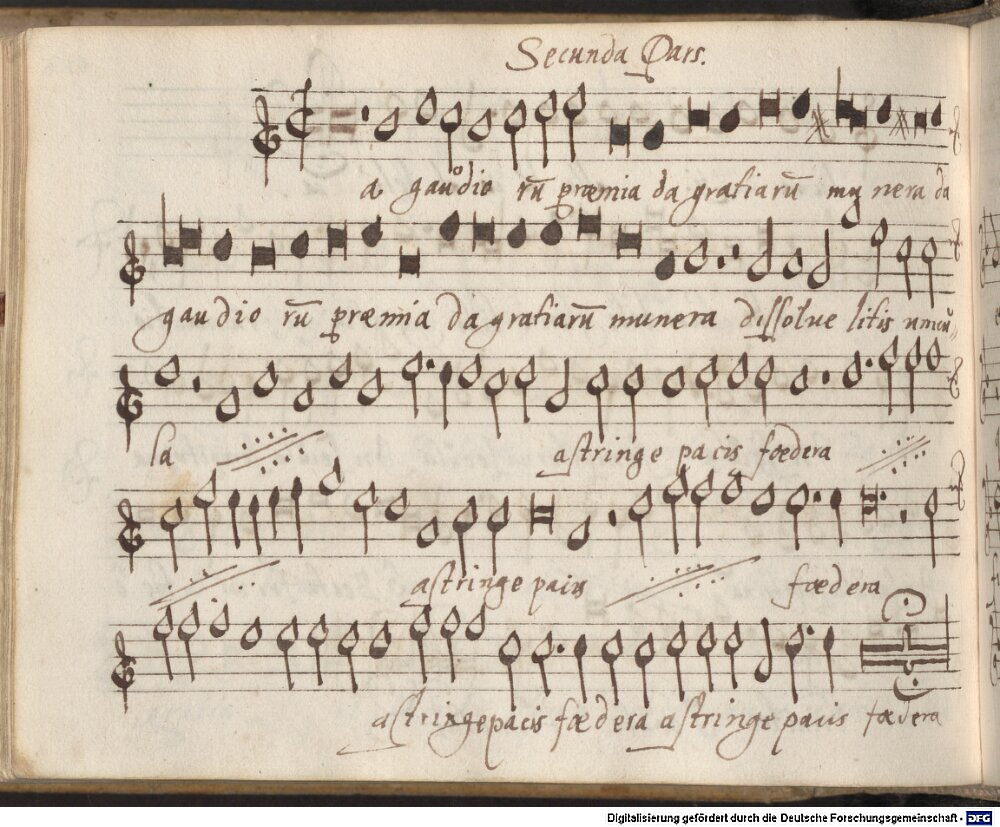 Secunda Pars.
a gaudio rū præmia da gratiarū mu nera da
gaudio rū præmia da gratiarū munera dissolve litis vincu=
la astringe pacis fœdera
astringe pacis fœdera
astringe pacis fœdera astringe pacis fœdera
Digitalisierung gefördert durch die Deutsche Forschungsgemeinschaft - DFG